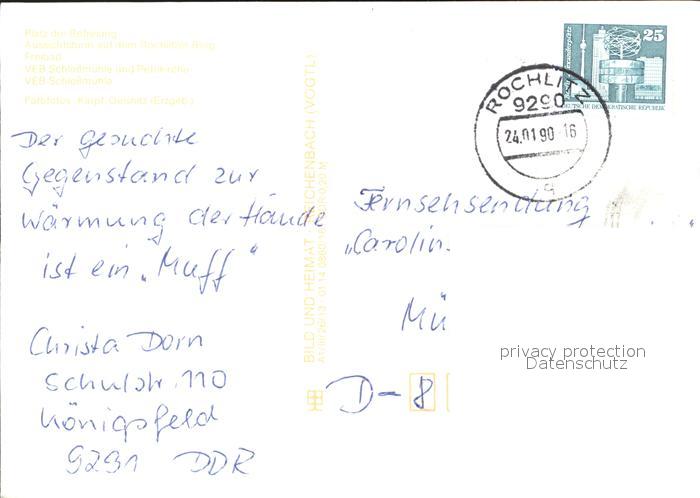 Platz der Befreiung
Aussichtsturm auf dem Rochlitzer Berg
Freibad
VEB Schloßmühle und Petrikirche
VEB Schloßmühle
Farbfotos: Karpf, Geishitz (Erzgeb.)
Der gesuchte
Gegenstand zur
Wärmung der Hände
ist ein „Muff“
Christa Dorn
Schulstr. 110
Königsfeld
9291 DDR
BILD UND HEIMAT REICHENBACH (VOGTL)
25
DEUTSCHE DEMOKRATISCHE REPUBLIK
ROCHLITZ
9290
24.01.90-16
a
Fernsehsendung
„Carolin.
Mü
D-8
privacy protection
Datenschutz